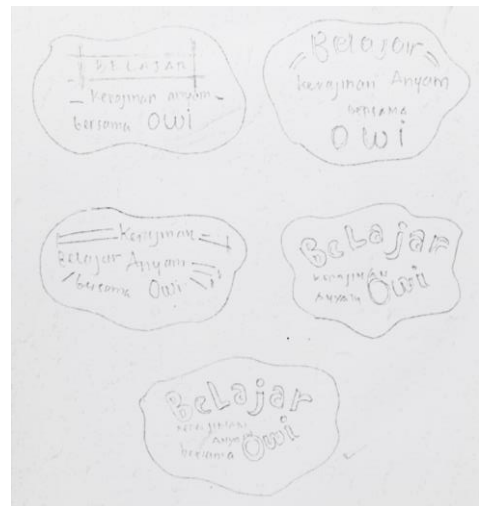 BELAJAR
Kerajinan anyam
bersama OWi
Belajar
kerajinan Anyam
BERSAMA
OWi
Kerajinan
Belajar Anyam
bersama Owi
BeLajar
kerajinan
Anyam Owi
BeLajar
kerajinan
anyam
bersama Owi